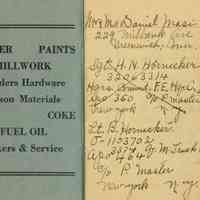 ER PAINTS
MILLWORK
lders Hardware
son Materials
COKE
FUEL OIL
kers & Service
Mr & Mrs Daniel Masi
229 Milbank Ave
Greenwich, Conn.
Sgt. H. N. Hornecker
32063314
APO 360 % P. Master
New York N.Y.
Lt. B. Hornecker
O-1103702
APO 464
c/o P. Master
New York N.Y.